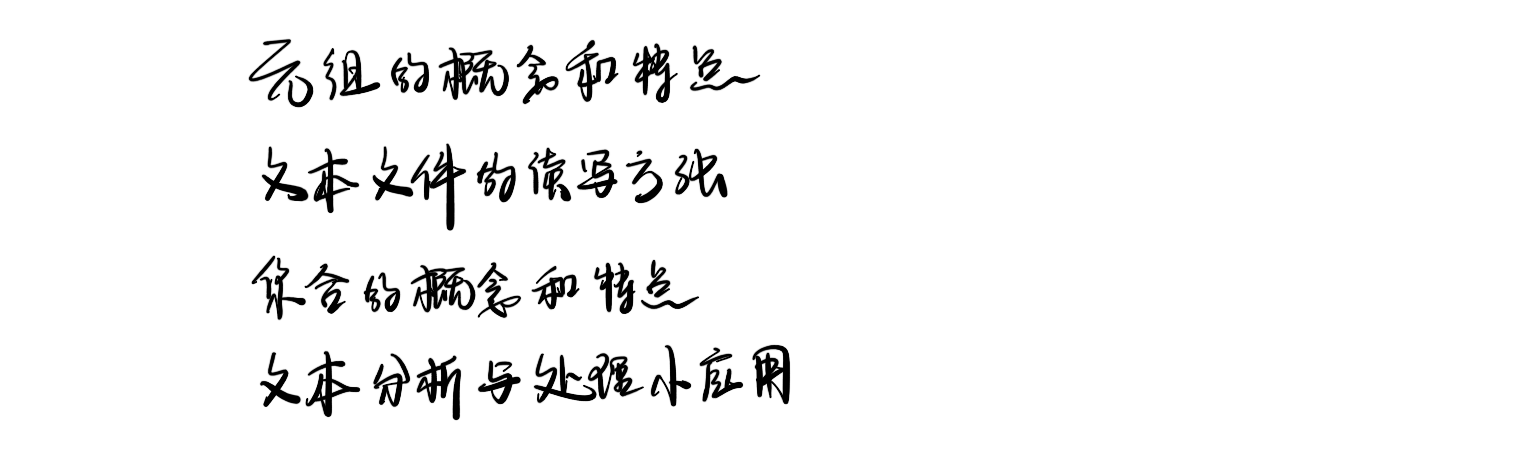 元组的概念和特点
文本文件的读写方法
集合的概念和特点
文本分析与处理小应用